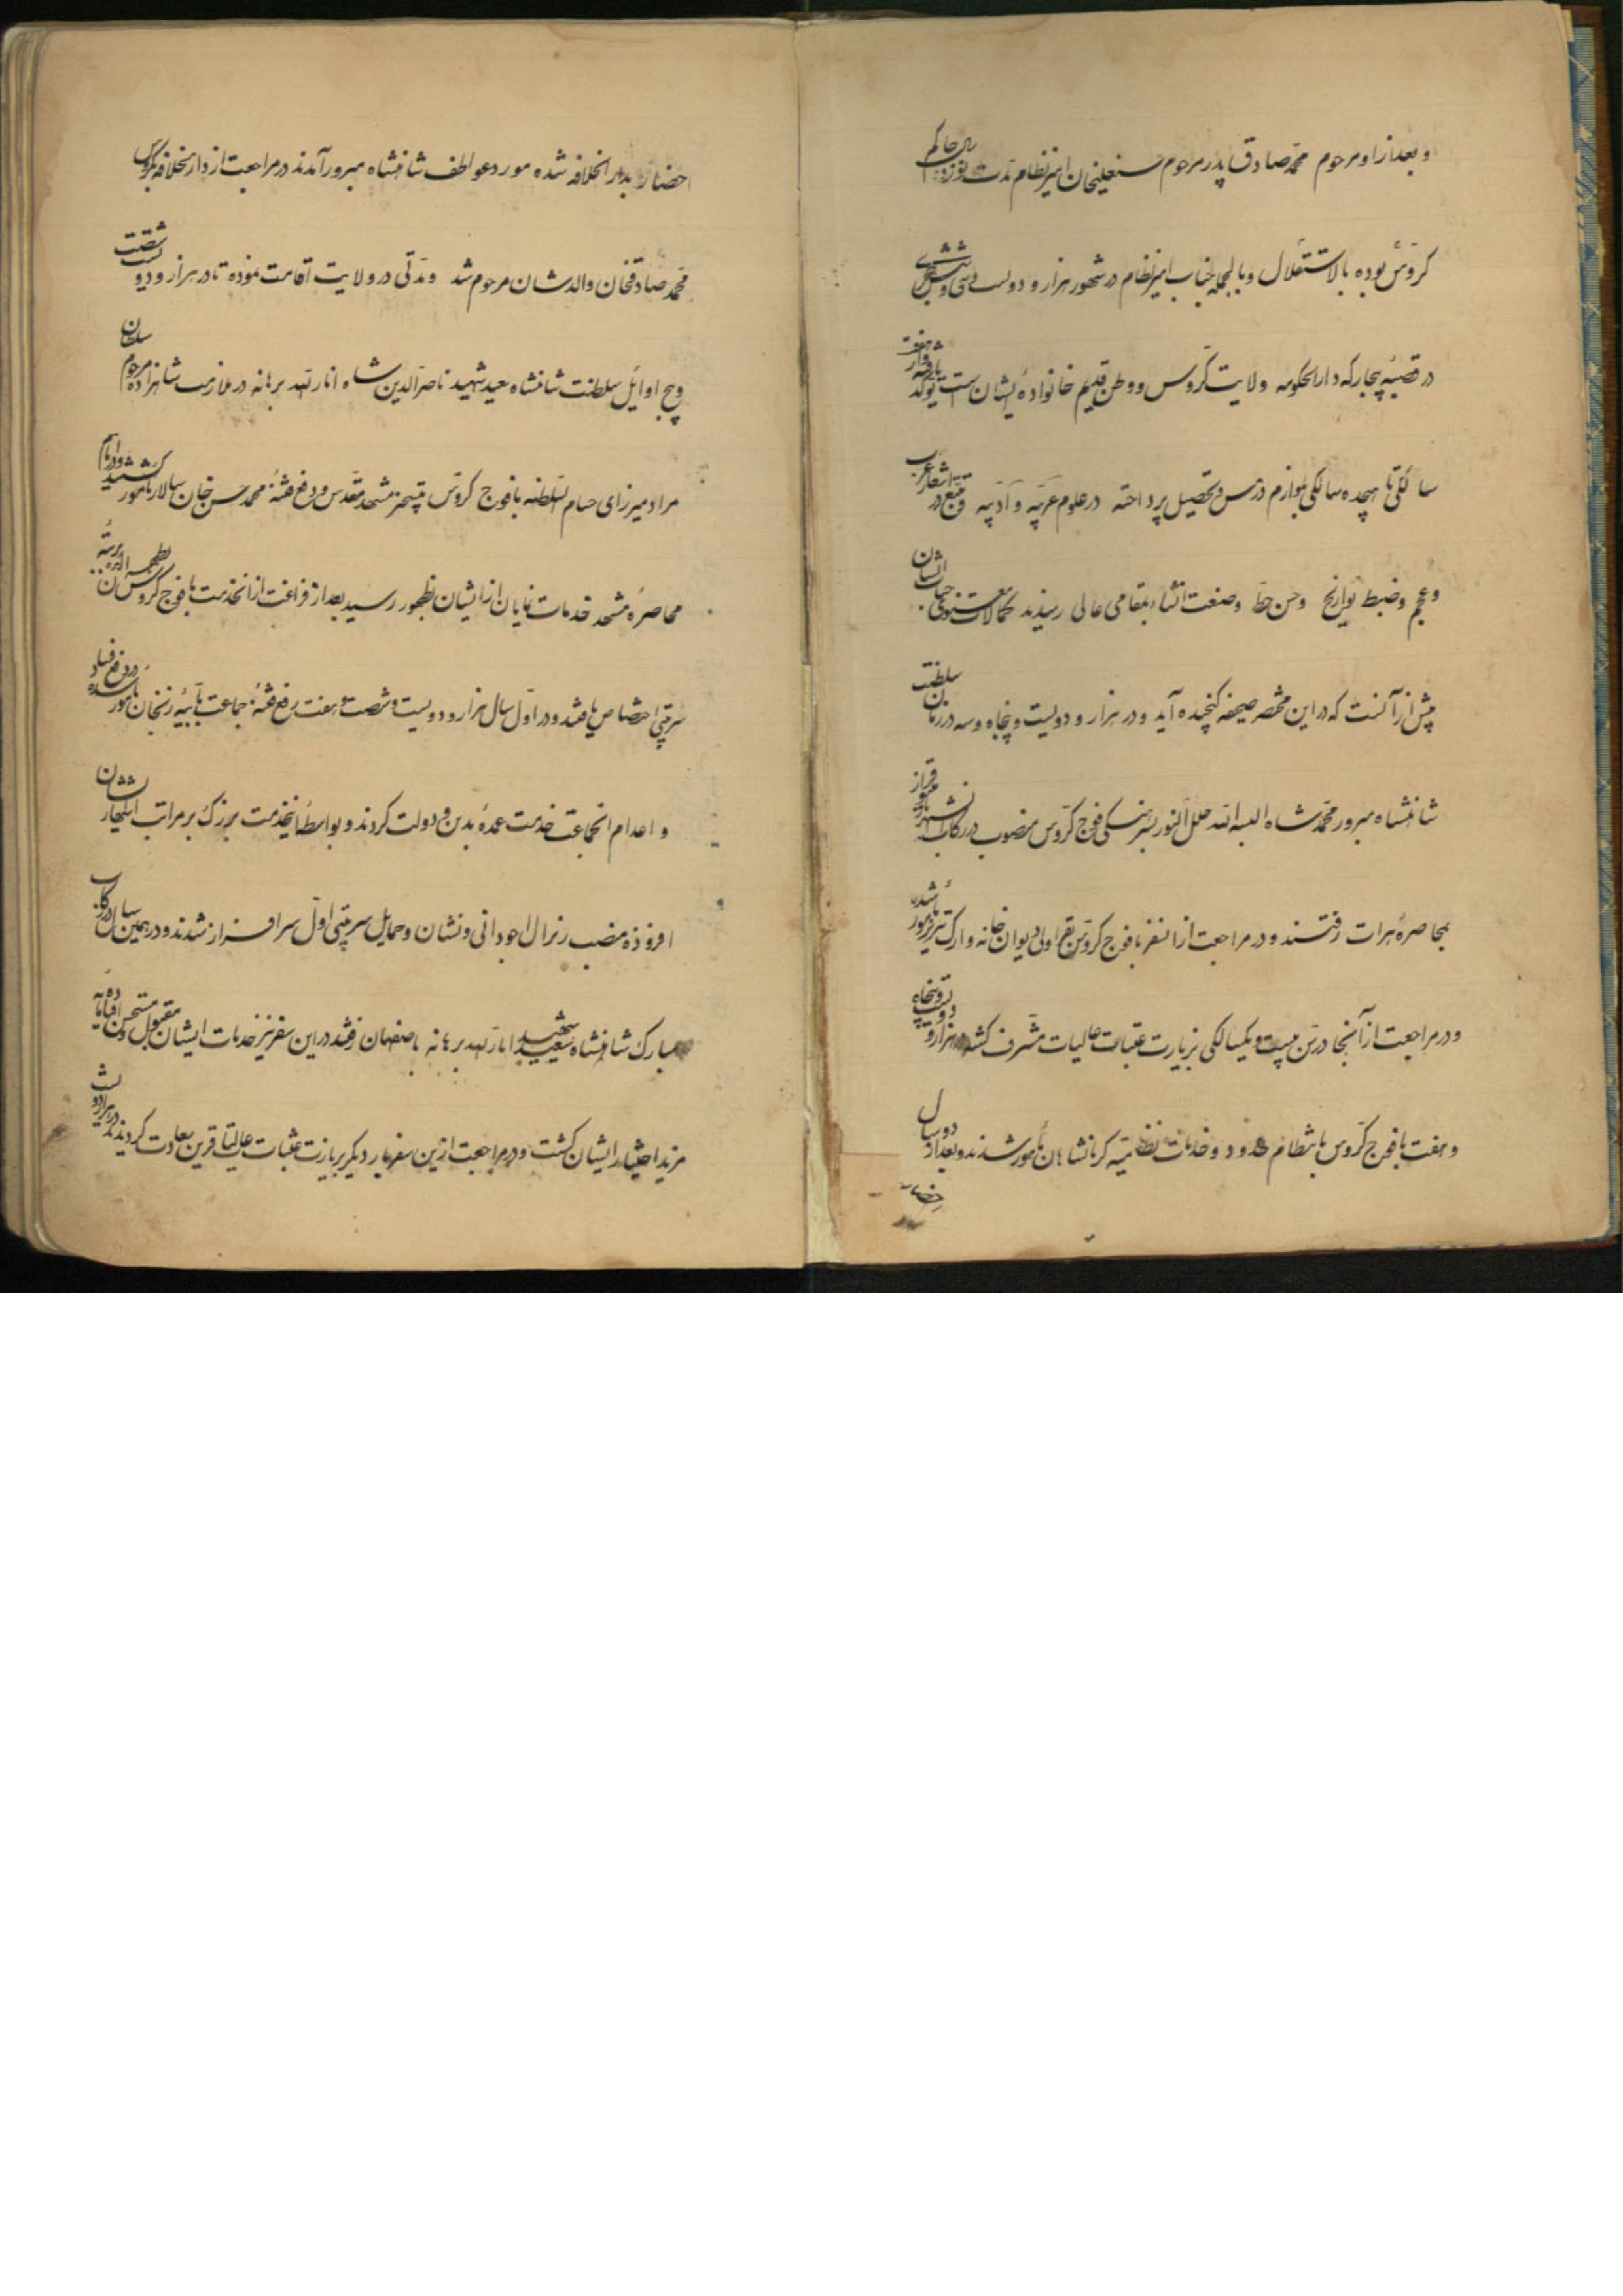 و بعد از او مرحوم محمد صادق پدر مرحوم حسنعلیخان امیر نظام مدت نوزده سال حاکم
کروس بوده بالاستقلال و بالجمله جناب امیر نظام در شهور هزار و دویست و سی و شش هجری
در قصبه بیجار که دارالحکومه ولایت کروس و وطن قدیم خانواده ایشان است تولد یافته و از هفت
سالگی تا هیجده سالگی بلوازم درس و تحصیل پرداخته در علوم عربیه و ادبیه و تتبع در اشعار عرب
و عجم و ضبط تواریخ و حسن خط و صنعت انشاء بمقامی عالی رسیدند کمالات معنوی جناب ایشان
بیش از آنست که در این مختصر صحیفه گنجیده آید و در هزار و دویست و پنجاه و سه در زمان سلطنت
شاهنشاه مبرور محمد شاه البسه الله حلل النور بسرهنگی فوج کروس منصوب در رکاب
بمحاصره هرات رفتند و در مراجعت از انسفر با فوج کروس بقراولی دیوان خانه و ارک تبریز مامور شده
و در مراجعت از آنجا در سن بیست و یکسالگی بزیارت عتبات عالیات مشرف گشته در هزار و دویست و پنجاه
و هفت با فوج کروس بانتظام حدود و خدمات نظامیه کرمانشاهان مامور شدند و بعد از دو سال
احضار بدار الخلافه شده مورد عواطف شاهنشاه مبرور آمدند در مراجعت از دار الخلافه بکروس
محمد صادقخان والدشان مرحوم شد و مدتی در ولایت اقامت نموده تا در هزار و دویست و شصت
و پنج اوائل سلطنت شاهنشاه سعید شهید ناصرالدین شاه انار الله برهانه در ملازمت شاهزاده مرحوم سلطان
مراد میرزای حسام السلطنه با فوج کروس بتسخیر مشهد مقدس و دفع فتنه محمد حسن خان سالار مامور گشتند و در ایام
محاصره مشهد خدمات نمایان از ایشان بظهور رسید بعد از فراغت از انخدمت با فوج کروس بطهران آمده برتبه
سرتیپی اختصاص یافتند و در اول سال هزار و دویست و شصت و هفت برفع فتنه جماعت بابیه زنجان مامور شده در دفع فساد
و اعدام انجماعت خدمت عمده بدین و دولت کردند و بواسطه اینخدمت بزرگ بر مراتب اشتهار ایشان
افزوده بمنصب ژنرال اجودانی و نشان و حمایل سرتیپی اول سرافراز شدند و در همین سال در رکاب
مبارک شاهنشاه سعید شهید انار الله برهانه باصفهان رفتند در این سفر نیز خدمات ایشان مقبول و مستحسن افتاده مایه
مزید اعتبار ایشان گشت و در مراجعت ازین سفر بار دیگر بزیارت عتبات عالیات قرین سعادت گردیدند در هزار و دویست